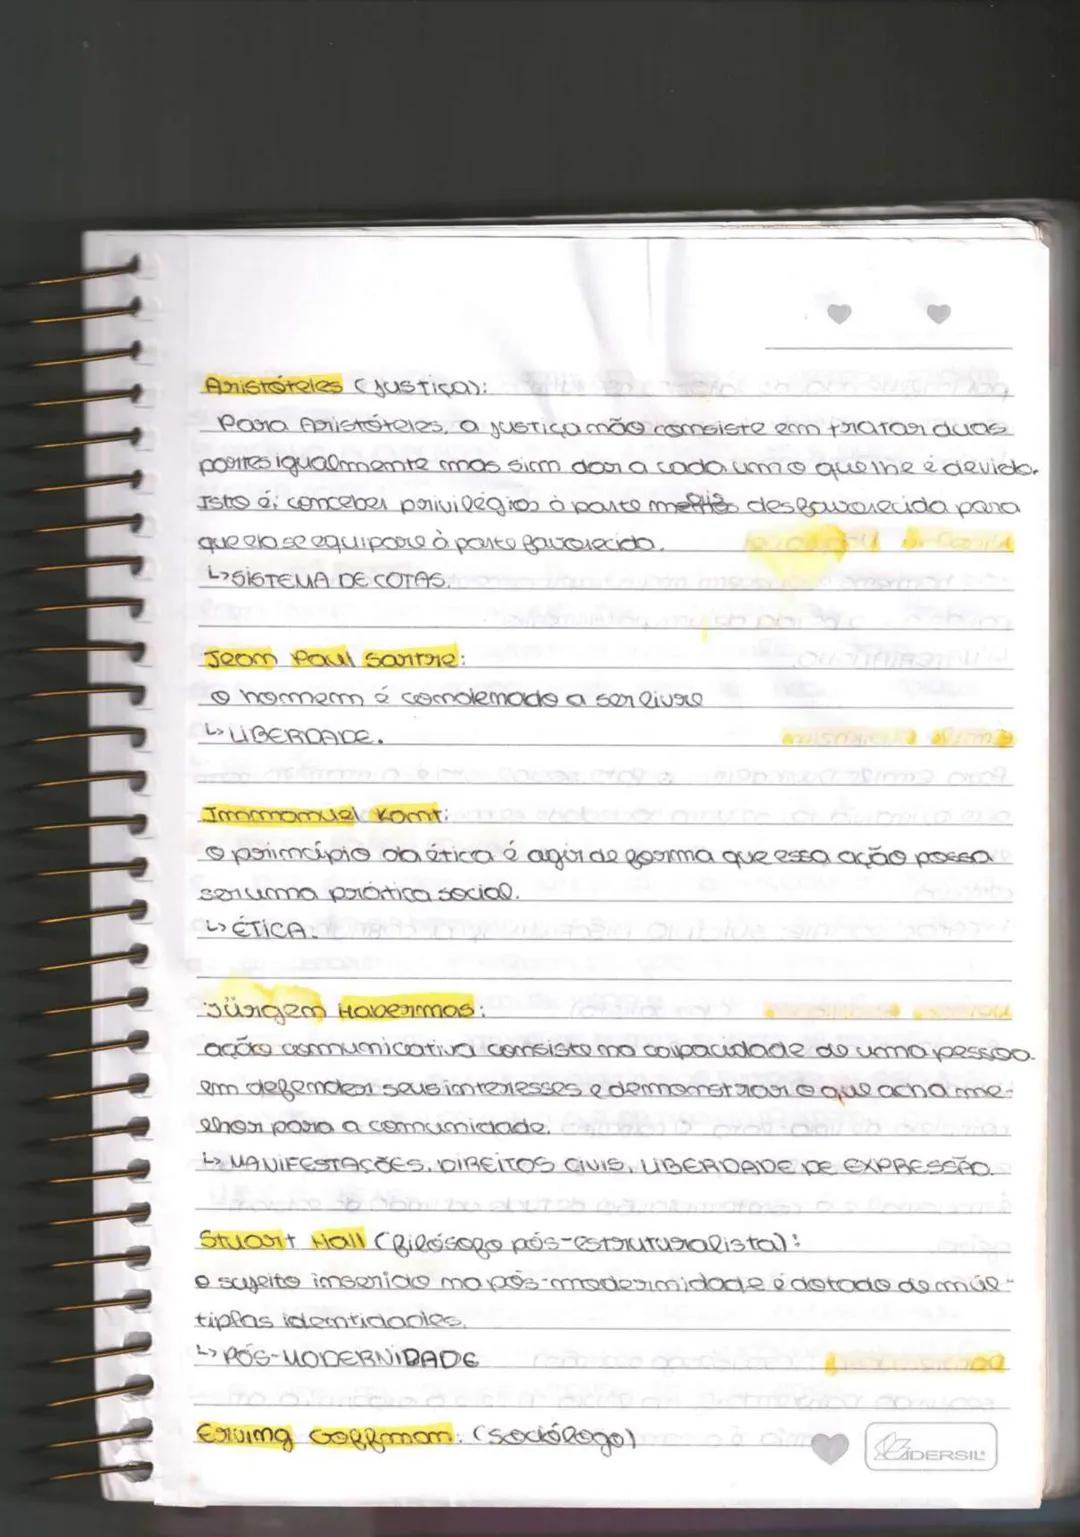 Aristóteles (justiça):
Para Aristóteles, a justiça não consiste em tratar duas
partes igualmente mas sim dar a cada um o que lhe é devido.
Isto é: conceber privilégios à parte mais desfavorecida para
que ela se equipare à parte favorecida.
↳ SISTEMA DE COTAS.
Jean Paul Sartre:
O homem é condenado a ser livre
↳ LIBERDADE.
Immanuel Kant:
O princípio da ética é agir de forma que essa ação possa
ser uma prática social.
↳ ÉTICA.
Jürgen Habermas:
ação comunicativa consiste na capacidade de uma pessoa
em defender seus interesses e demonstrar o que acha me-
lhor para a comunidade.
↳ MANIFESTAÇÕES, DIREITOS CIVIS, LIBERDADE DE EXPRESSÃO.
Stuart Hall (filósofo pós-estruturalista):
o sujeito inserido na pós-modernidade é dotado de múl-
tiplas identidades.
↳ PÓS-MODERNIDADE
Erving Goffman: (sociólogo)
CADERSIL